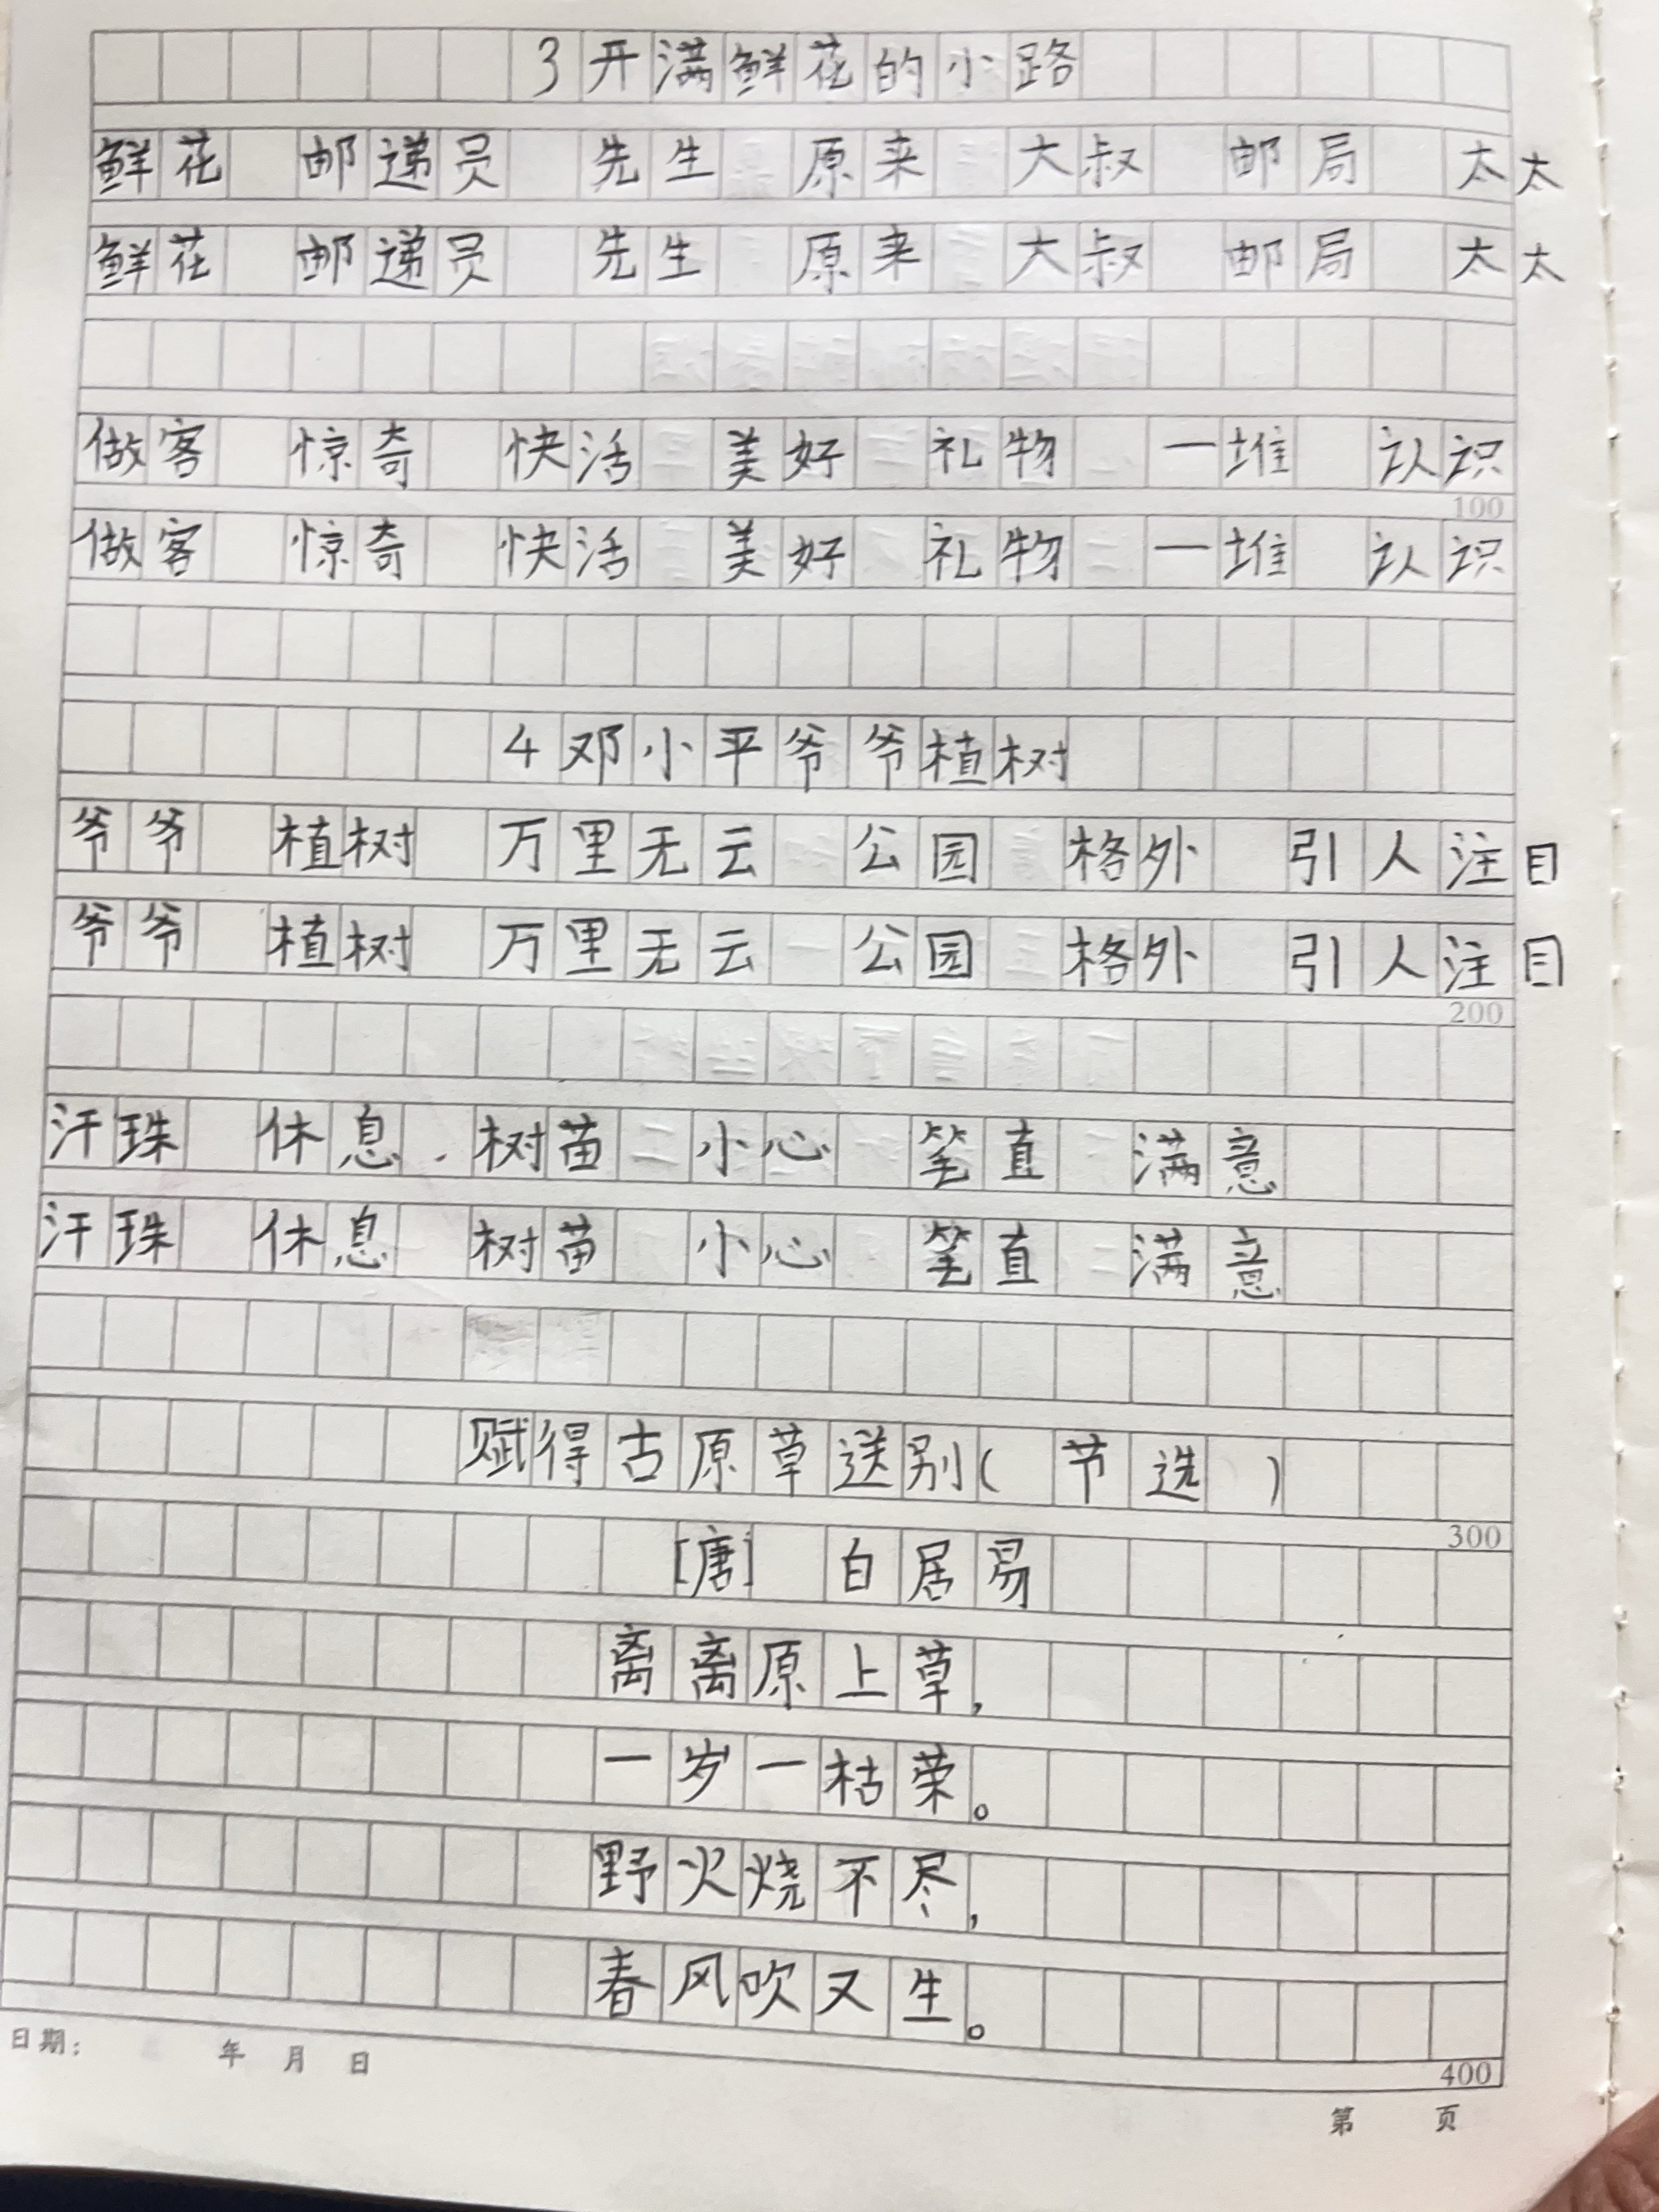 3开满鲜花的小路
鲜花 邮递员 先生 原来 大叔 邮局 太太
鲜花 邮递员 先生 原来 大叔 邮局 太太
做客 惊奇 快活 美好 礼物 一堆 认识
100
做客 惊奇 快活 美好 礼物 一堆 认识
4邓小平爷爷植树
爷爷 植树 万里无云 公园 格外 引人注目
爷爷 植树 万里无云 公园 格外 引人注目
200
汗珠 休息 树苗 小心 笔直 满意
汗珠 休息 树苗 小心 笔直 满意
赋得古原草送别(节选)
300
[唐] 白居易
离离原上草,
一岁一枯荣。
野火烧不尽,
春风吹又生。
400
日期: 年 月 日
第 页